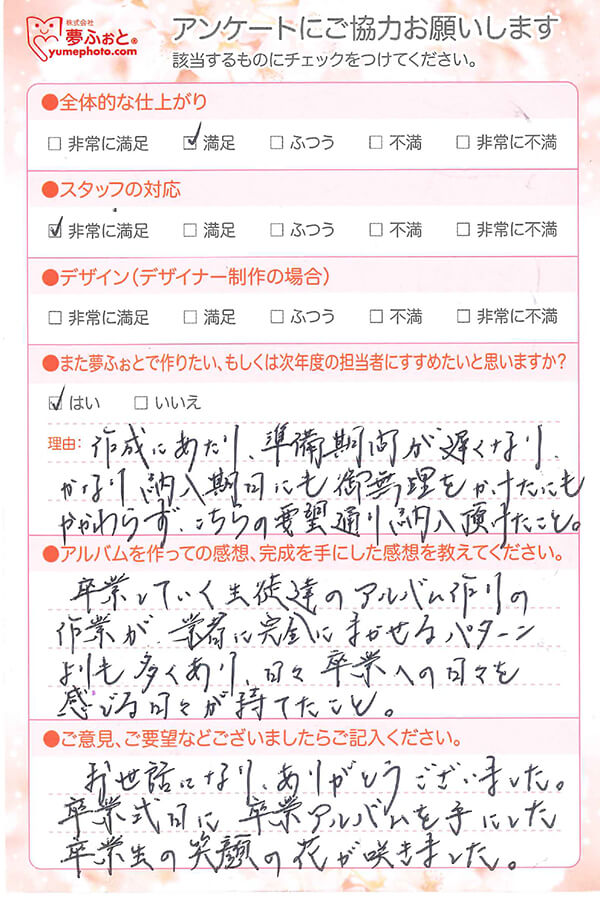 株式会社
夢ふぉと®
yumephoto.com
アンケートにご協力お願いします
該当するものにチェックをつけてください。
●全体的な仕上がり
□ 非常に満足 ☑ 満足 □ ふつう □ 不満 □ 非常に不満
●スタッフの対応
☑ 非常に満足 □ 満足 □ ふつう □ 不満 □ 非常に不満
●デザイン(デザイナー制作の場合)
□ 非常に満足 □ 満足 □ ふつう □ 不満 □ 非常に不満
●また夢ふぉとで作りたい、もしくは次年度の担当者にすすめたいと思いますか?
☑ はい □ いいえ
理由: 作成にあたり、準備期間が遅くなり、
かなり納入期日にも御無理をかけたにも
かかわらず、こちらの要望通り納入頂けたこと。
●アルバムを作っての感想、完成を手にした感想を教えてください。
卒業していく生徒達のアルバム作りの
作業が、業者に完全にまかせるパターン
よりも多くあり、日々卒業への日々を
感じる日々が持てたこと。
●ご意見、ご要望などございましたらご記入ください。
お世話になり、ありがとうございました。
卒業式日に卒業アルバムを手にした
卒業生の笑顔の花が咲きました。